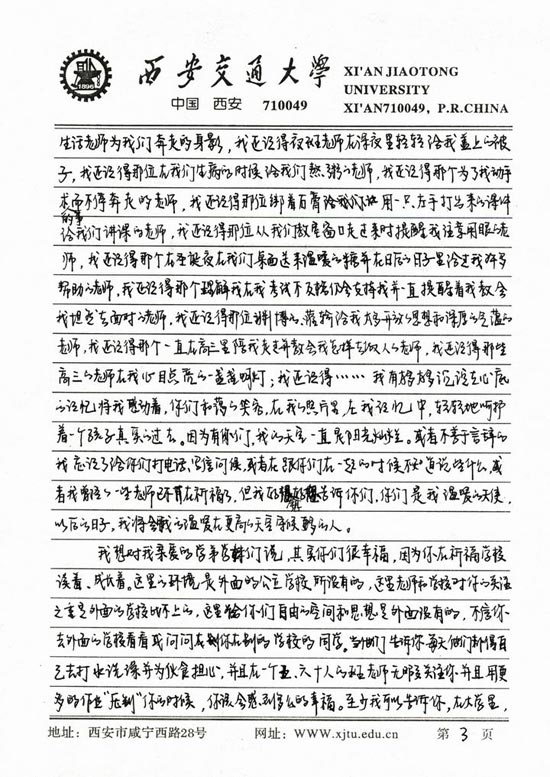 1896
西安交通大学
XI'AN JIAOTONG
UNIVERSITY
中国 西安 710049
XI'AN710049, P.R.CHINA
生活老师为我们奔走的身影，我还记得夜班老师在深夜里轻轻给我盖上的被
子，我还记得那位在我们生病的时候给我们熬粥的老师，我还记得那个为了我动手
术而不得奔走的老师，我还记得那位绑着石膏用一只左手打出来的课件
给我们讲课的老师，我还记得那位从我们教室窗口走过来时提醒我注意用眼的老
师，我还记得那个在圣诞夜在我们桌面送来温暖的糖并在日后的日子里给过我许多
帮助的老师，我还记得那个理解我在我考试不及格仍会支持我并一直提醒着我教会
我坦然去面对的老师，我还记得那位渊博的，带给我大多开放的思想和深厚的
老师，我还记得那个一直在高三里陪我走并教会我怎样去做人的老师，我还记得那些
高三的老师在我心目点亮的一盏盏明灯；我还记得……我有好多好多沉淀在心底
的记忆将我感动着，你们和蔼的笑容，在我的照片里，在我记忆中，轻轻地呵护
着一个孩子真实的过去。因为有你们，我的天空一直是阳光灿烂。或者不善于言辞的
我忘记了给你们打电话，写信问候，或者在跟你们在一起的时候不知道说些什么，或
者我曾经的一些老师已不在祈福了，但我好想好想告诉你们，你们是我温暖的天使，
以后的日子，我将会载着温暖在更高的天空等候的人。
我想对我亲爱的学弟学妹们说，其实你们很幸福，因为你在祈福学校
读着、成长着。这里的环境是外面的公立学校所没有的，这里老师和学校对你的关注
之重是外面的学校比不上的，这里给你们自由的空间和思想是外面没有的，不信你
去外面的学校看看或问问在别的学校的同学。当他们告诉你每天他们都得自
己去打水洗澡并为伙食担心，并且在一个五、六十人的班老师无暇去关注你并且用更
多的作业“压制”你的时候，你很会感到什么的幸福。至少我可以告诉你，在大学里，
地址：西安市咸宁西路28号
网址：WWW.xjtu.edu.cn
第 3 页